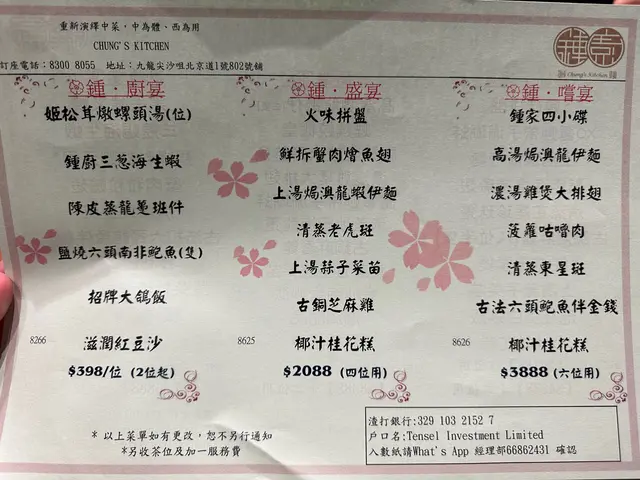 重新演繹中菜，中為體、西為用
CHUNG'S KITCHEN
訂座電話：8300 8055 地址：九龍尖沙咀北京道1號802號舖
Chung's Kitchen
鍾・廚宴
姬松茸燉螺頭湯(位)
鍾廚三葱海生蝦
陳皮蒸龍躉班件
鹽燒六頭南非鮑魚(隻)
招牌大鴿飯
8266 滋潤紅豆沙
$398/位 (2位起)
鍾・盛宴
火味拼盤
鮮拆蟹肉燴魚翅
上湯焗澳龍蝦伊麵
清蒸老虎斑
上湯蒜子菜苗
古銅芝麻雞
8625 椰汁桂花糕
$2088 (四位用)
鍾・嚐宴
鍾家四小碟
高湯焗澳龍伊麵
濃湯雞煲大排翅
菠蘿咕嚕肉
清蒸東星斑
古法六頭鮑魚伴金錢
8626 椰汁桂花糕
$3888 (六位用)
* 以上菜單如有更改，恕不另行通知
*另收茶位及加一服務費
渣打銀行:329 103 2152 7
戶口名:Tensel Investment Limited
入數紙請What's App 經理部66862431 確認